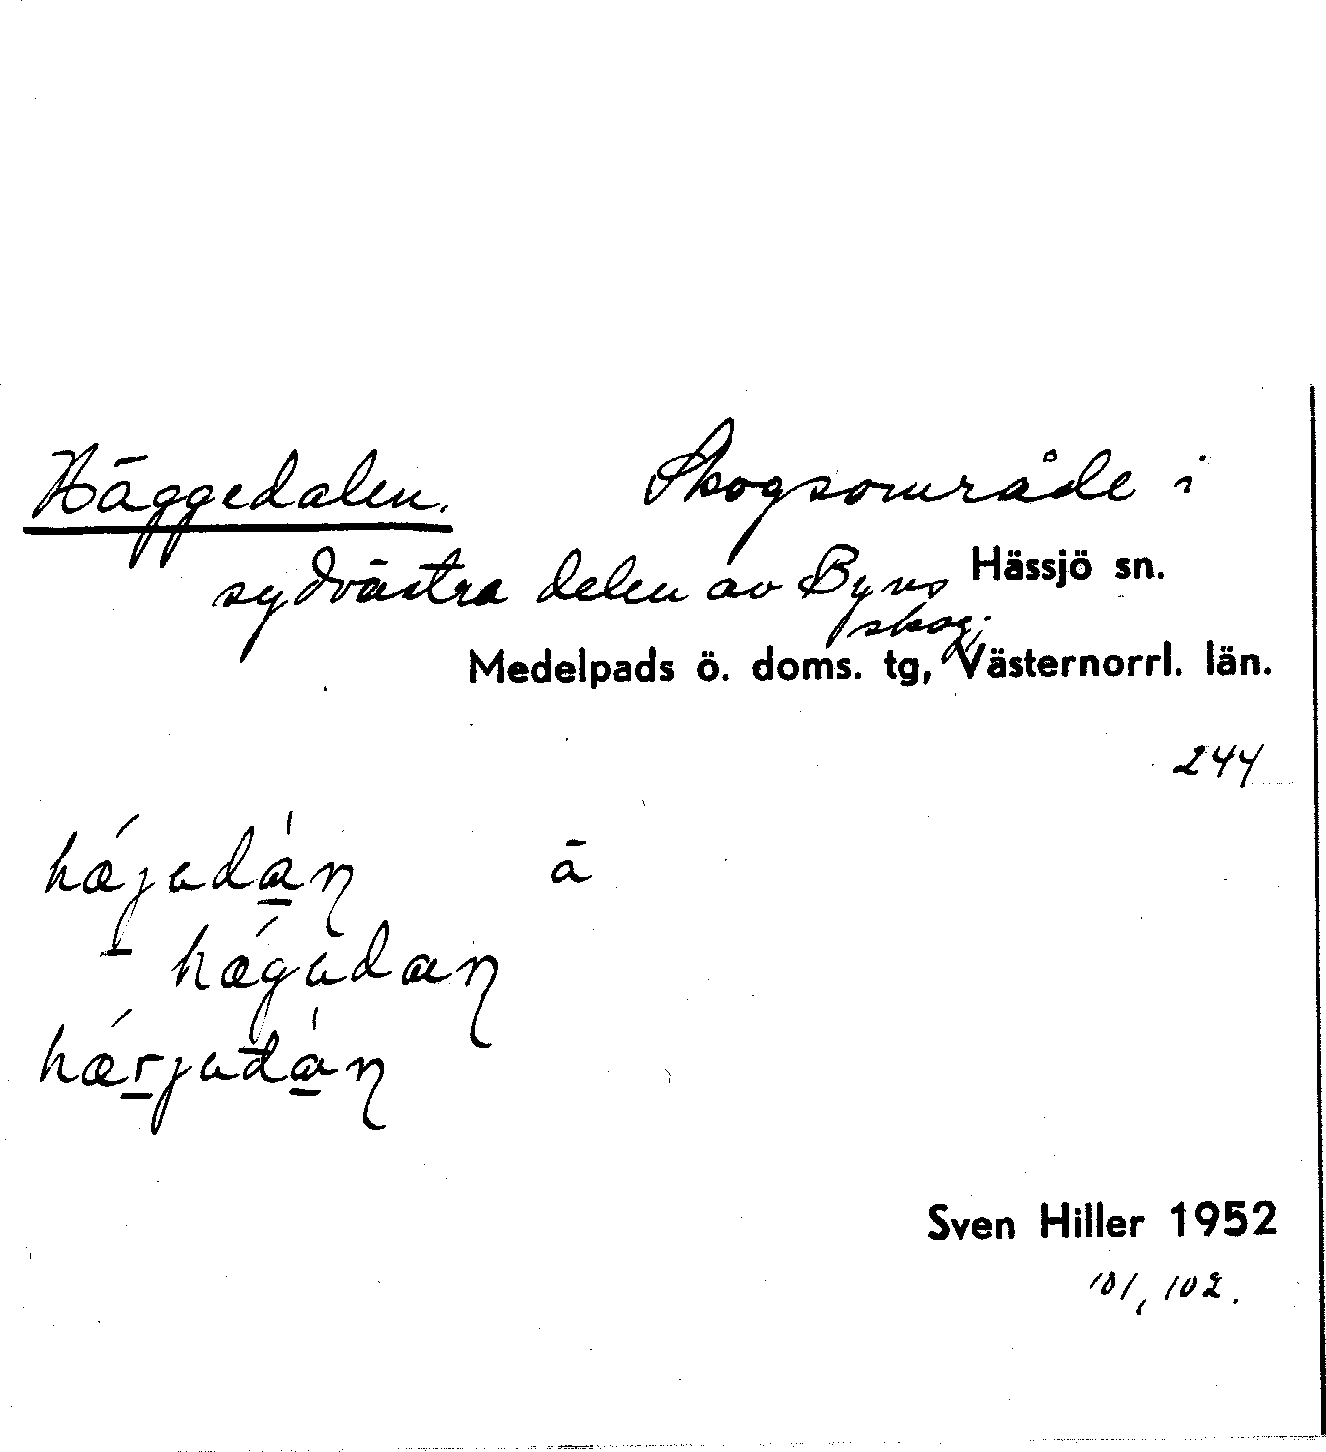 Häggedalen. Skogsområde i
sydvästra delen av Byns Hässjö sn.
skog.
Medelpads ö. doms. tg, Västernorrl. län.
244
å
Sven Hiller 1952
101, 102.